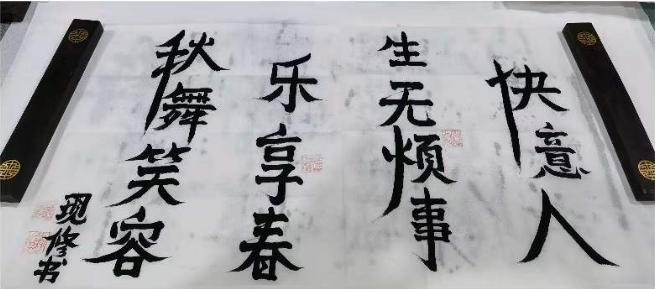 快意人
生无烦事
乐享春
秋舞笑容
现修书